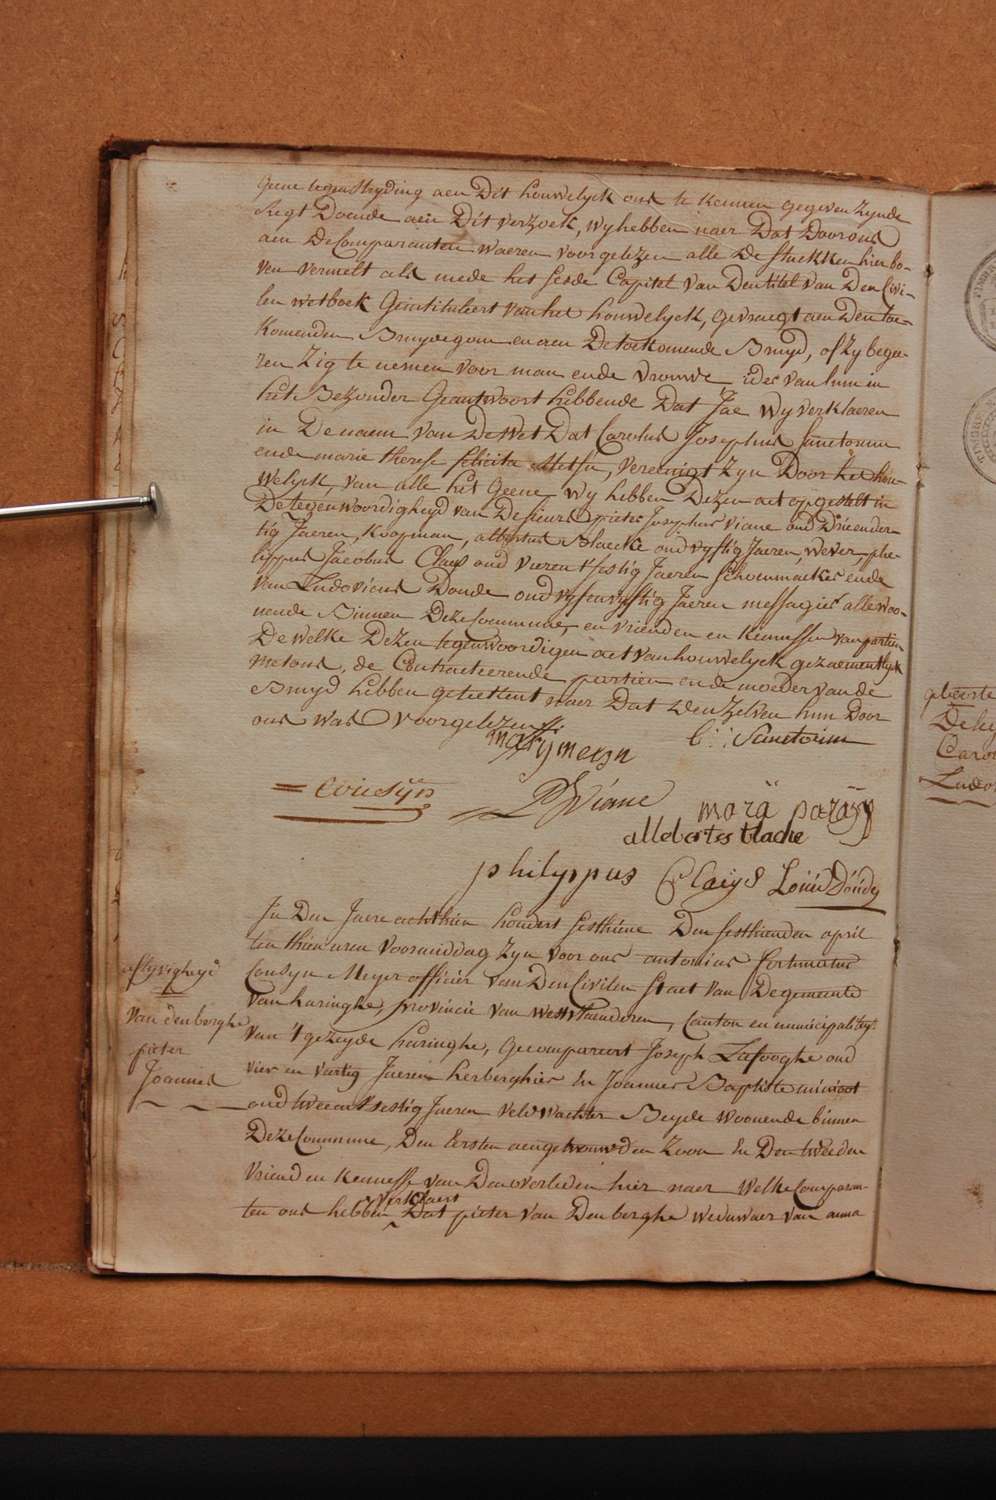 geene tegenstryding aen Dit houwelyck ons te kennen gegeven zynde
Regt Doende aen Dit verzoek, wy hebben naer Dat Door ons
aen De Comparanten waeren voorgelezen alle De stukken hier bo-
ven vermelt als mede het sesde Capitel van Den titel van Den Civi-
len wetboek Geintituleert van het houwelyck, gevraegt aen Den toe-
komenden Bruydegom en aen De toekomende Bruyd, of Zy begee-
ren Zig te nemen voor man ende vrouwe ider van hun in
het Bezonder Geantwoort hebbende Dat Jae Wy verklaeren
in De naem van De Wet Dat Carolus Josephus Sanctorum
ende marie therese felicita Metsu, vereenigt Zyn Door het hou-
welyck, van alle het Geene Wy hebben Dezen act opgestelt in
De tegenwoordigheyd van De sieurs pieter Josephus Viane oud Drieender-
tig Jaeren, Koopman, albertus Blaecke oud vyftig Jaeren, wever, phi-
lippus Jacobus Claeys oud vierentsestig Jaeren schoenmaeker ende
van Ludovicus Doude oud vyfenvyftig Jaeren messagier alle woo-
nende Binnen Deze Commune, en vrienden en Kennessen van partien
De welke Dezen tegenwoordigen act van houwelyck gezaementlyk
met ons, de Contracteerende partien ende moeder van de
Bruyd hebben getiekent naer Dat Den Zelven hun Door
ons was voorgelezen
C: J: Sanctorum
= Cousyn
PJ Viane
mara
allebertes blacke
philyppus Claeys Louis Doude
In Den Jaere achthien hondert sesthiene Den sesthienden april
ten thien uren voormiddag Zyn voor ons antonius fortunatus
Cousyn Meyer officier van Den Civilen staet van De gemeente
van haringhe, provincie van Westvlaenderen, Canton en municipalityt
van 't gezeyde haringhe, Gecompareert Joseph Lafooghe oud
vier en vertig Jaeren herberghier En Joannes Baptiste
oud tweentsestig Jaeren Veldwachter Beyde woonende binnen
Deze Commune, Den Eersten aengetrouwden Zoon En Den tweeden
vriend en kennesse van Den overleden hier naer Welke Comparan-
verklaert
ten ons hebben ^ Dat pieter van Den berghe weduwaer van anna
aflyvigheyd
van den berghe
pieter
Joannes
Carol
Ludov